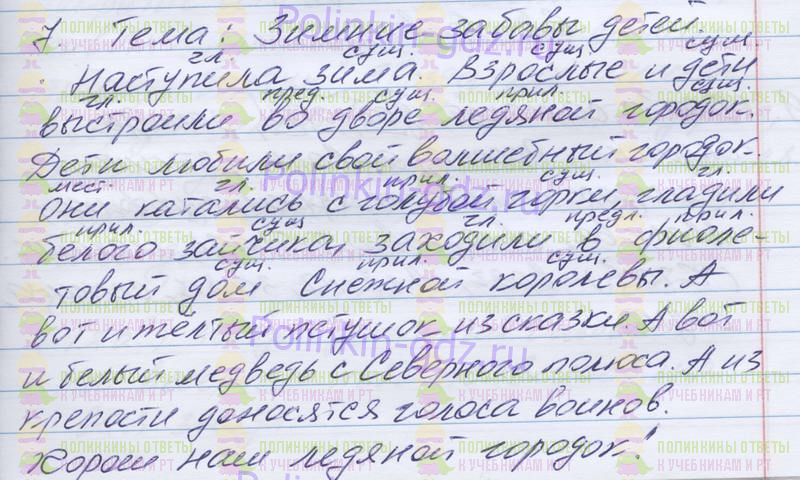 7. Тема: Зимние забавы детей
гл. сущ. сущ. сущ.
Наступила зима. Взрослые и дети
гл. пред. сущ. прил. сущ.
выстроили во дворе ледяной городок.
Дети любили свой волшебный городок.
мест. гл. прил. сущ. гл.
Они катались с голубой горки, гладили
прил. сущ. гл. предл. прил.
белого зайчика, заходили в фиоле-
сущ. прил. сущ.
товый дом Снежной королевы. А
вот и жёлтый петушок из сказки. А вот
и белый медведь с Северного полюса. А из
крепости доносятся голоса воинов.
Хорош наш ледяной городок!
ПОЛИНКИНЫ ОТВЕТЫ
К УЧЕБНИКАМ И РТ
Polinkin-gdz.ru